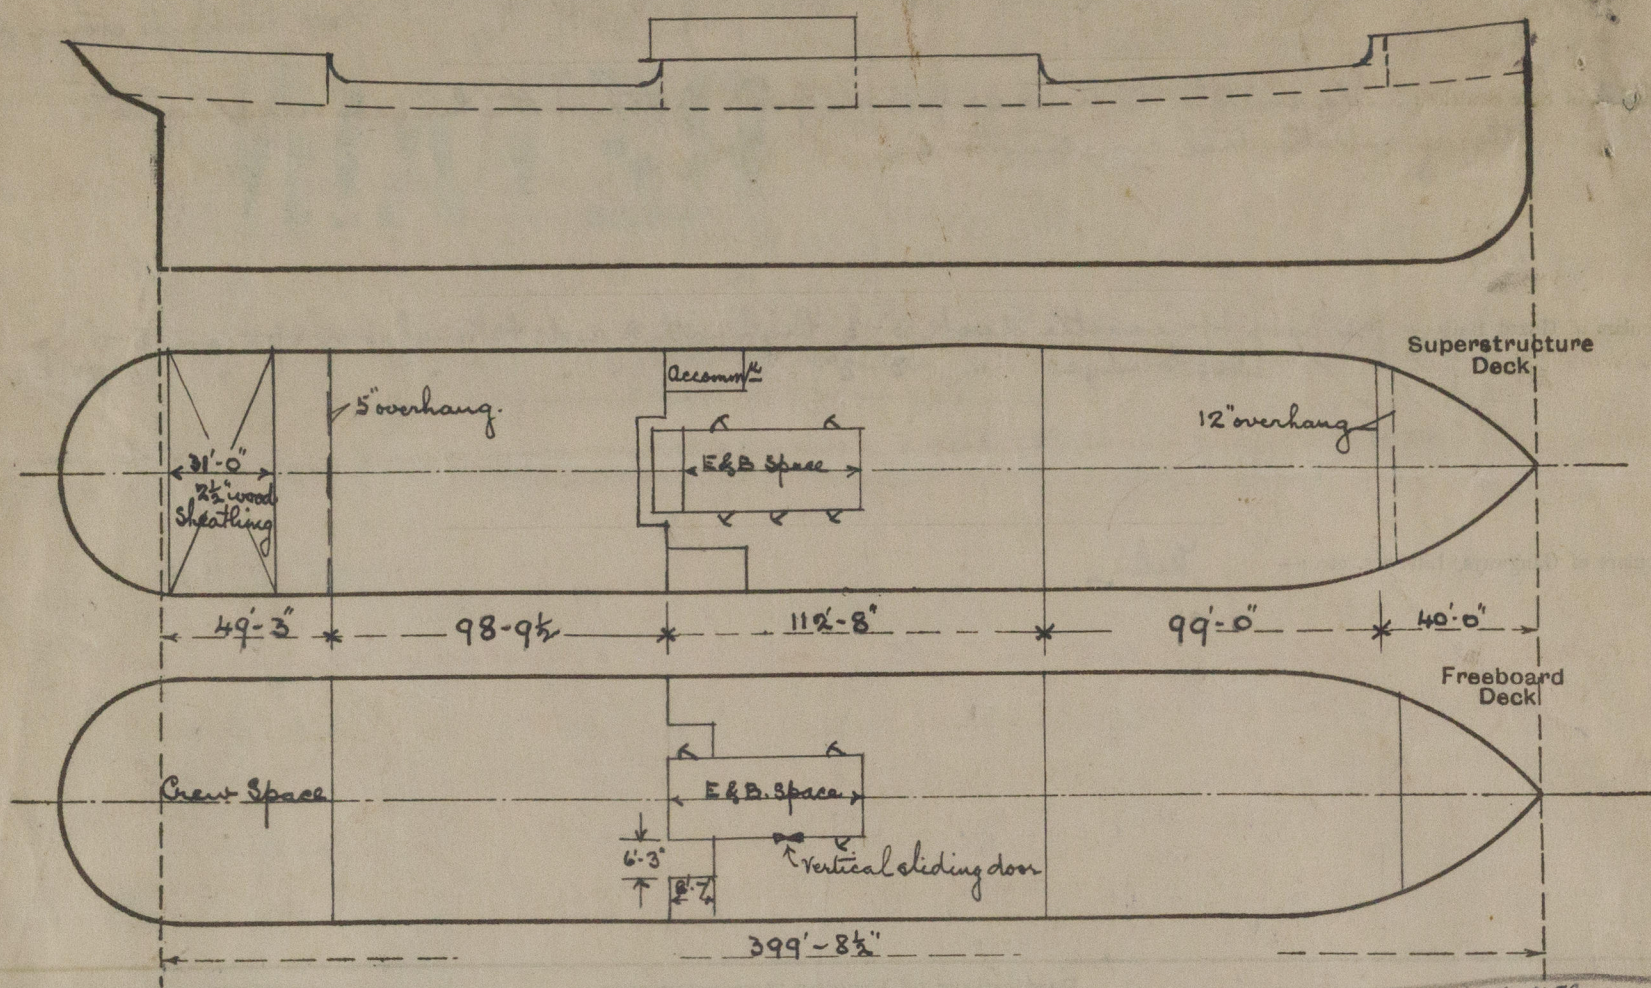 Superstructure
Deck
Accomm
5" overhang.
12" overhang
31'-0"
2½" wood
Sheathing
E&B Space
49'-3"
98-9½
112'-8"
99'-0"
40'-0"
Freeboard
Deck
Crew Space
E&B. Space
6'-3"
Vertical sliding door
399'-8½"